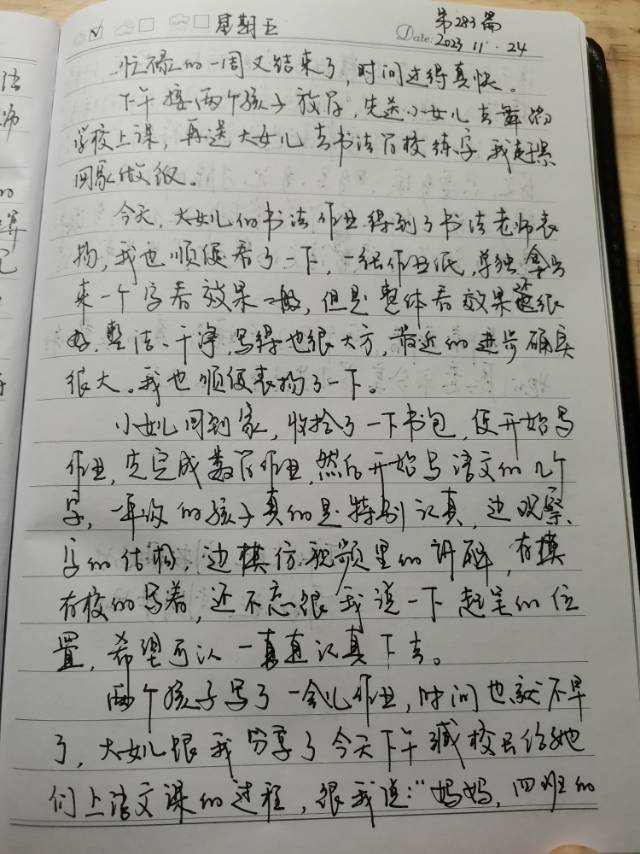 星期五
第283篇
Date: 2023.11.24
忙碌的一周又结束了,时间过得真快。
下午接两个孩子放学,先送小女儿去舞蹈
学校上课,再送大女儿去书法学校练字,我赶紧
回家做饭。
今天,大女儿的书法作业得到了书法老师表
扬,我也顺便看了一下,一张作业纸,单独拿出
来一个字看效果一般,但是整体看效果还很
好,整洁、干净,写得也很大方,最近的进步确实
很大。我也顺便表扬了一下。
小女儿回到家,收拾了一下书包,便开始写
作业,先完成数学作业,然后开始写语文的几个
字,一年级的孩子真的是特别认真,边观察
字的结构,边模仿视频里的讲解,有模
有样的写着,还不忘跟我说一下起笔的位
置,希望可以一直认真下去。
两个孩子写了一会儿作业,时间也就不早
了,大女儿跟我分享了今天下午臧校长给她
们上语文课的过程,跟我说:“妈妈,四班的